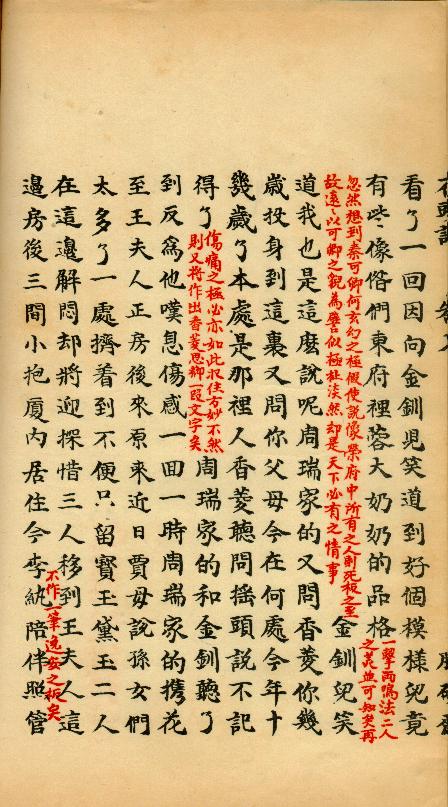 看了一回因向金釧兒笑道到好個模樣兒竟
有些像偺們東府裡蓉大奶奶的品格
一擊兩鳴法二人
之美並可知矣再
忽然想到秦可卿何玄幻之極假使說像榮府中所有之人則死板之至
故遠〻以可卿之貌為譬似極扯淡然却是天下必有之情事
金釧兒笑
道我也是這麽說呢周瑞家的又問香菱你幾
歲投身到這裏又問你父母今在何處今年十
幾歲了本處是那裡人香菱聽問搖頭說不記
得了
傷痛之極必亦如此收住方妙不然
則又將作出香菱思鄉一段文字矣
周瑞家的和金釧聽了
到反為他嘆息傷感一囬一時周瑞家的携花
至王夫人正房後來原來近日賈母說孫女們
太多了一處擠着到不便只留寳玉黛玉二人
在這邊解悶却將迎探惜三人移到王夫人這
不作一筆逸安之板矣
邊房後三間小抱厦内居住今李紈陪伴照管